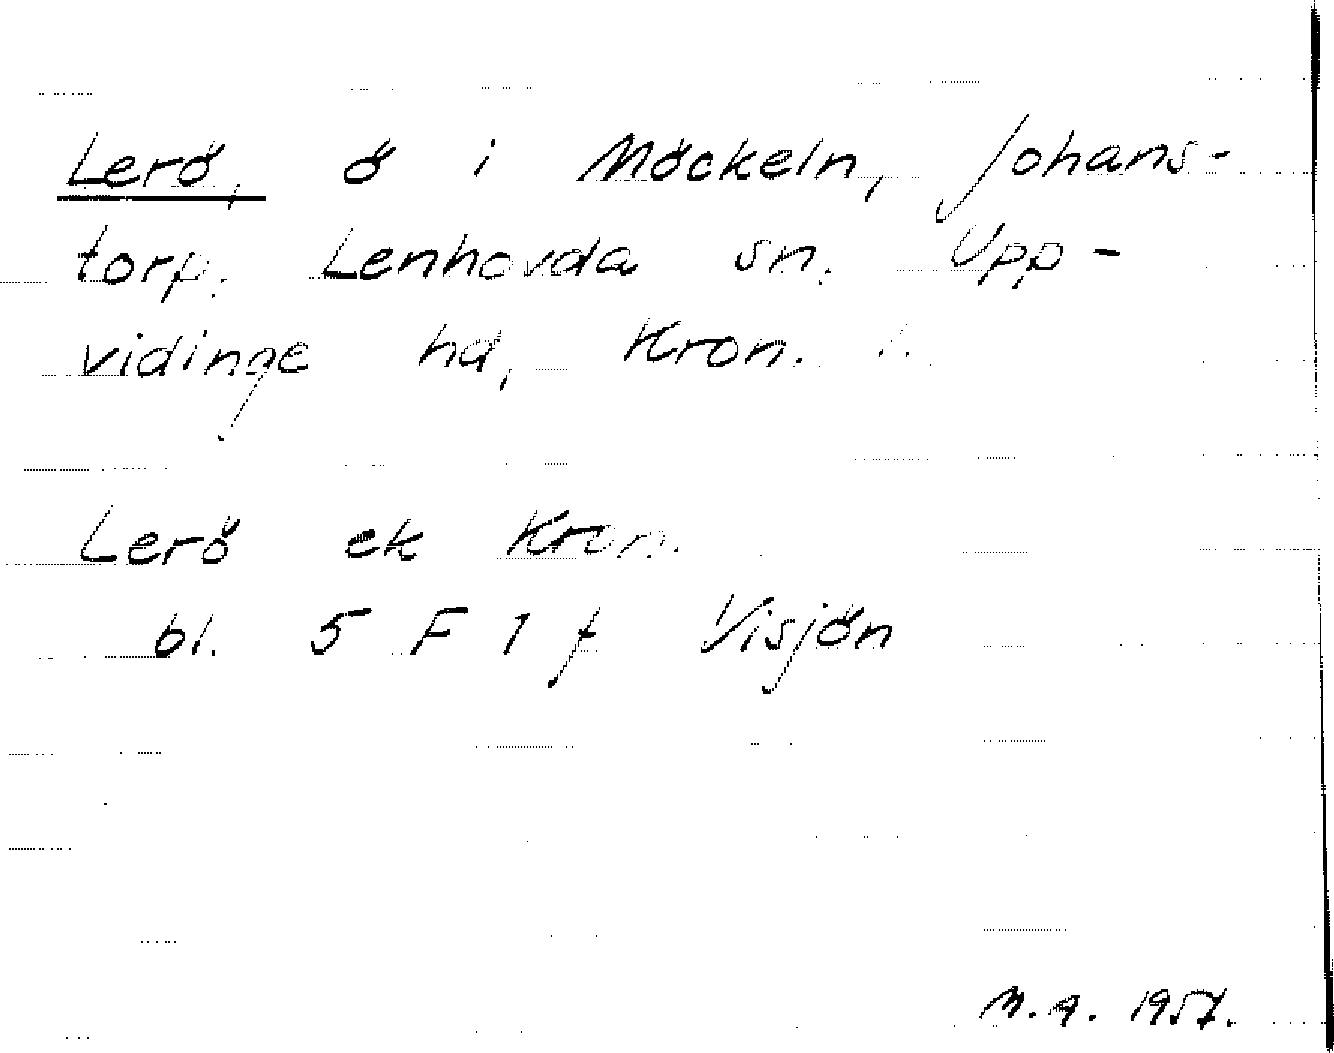 Lerö, ö i Möckeln, Johans-
torp. Lenhovda sn. Upp-
vidinge hd, Kron. l.
Lerö ek Kron.
bl. 5 F 1 f Visjön
M.A. 1957.